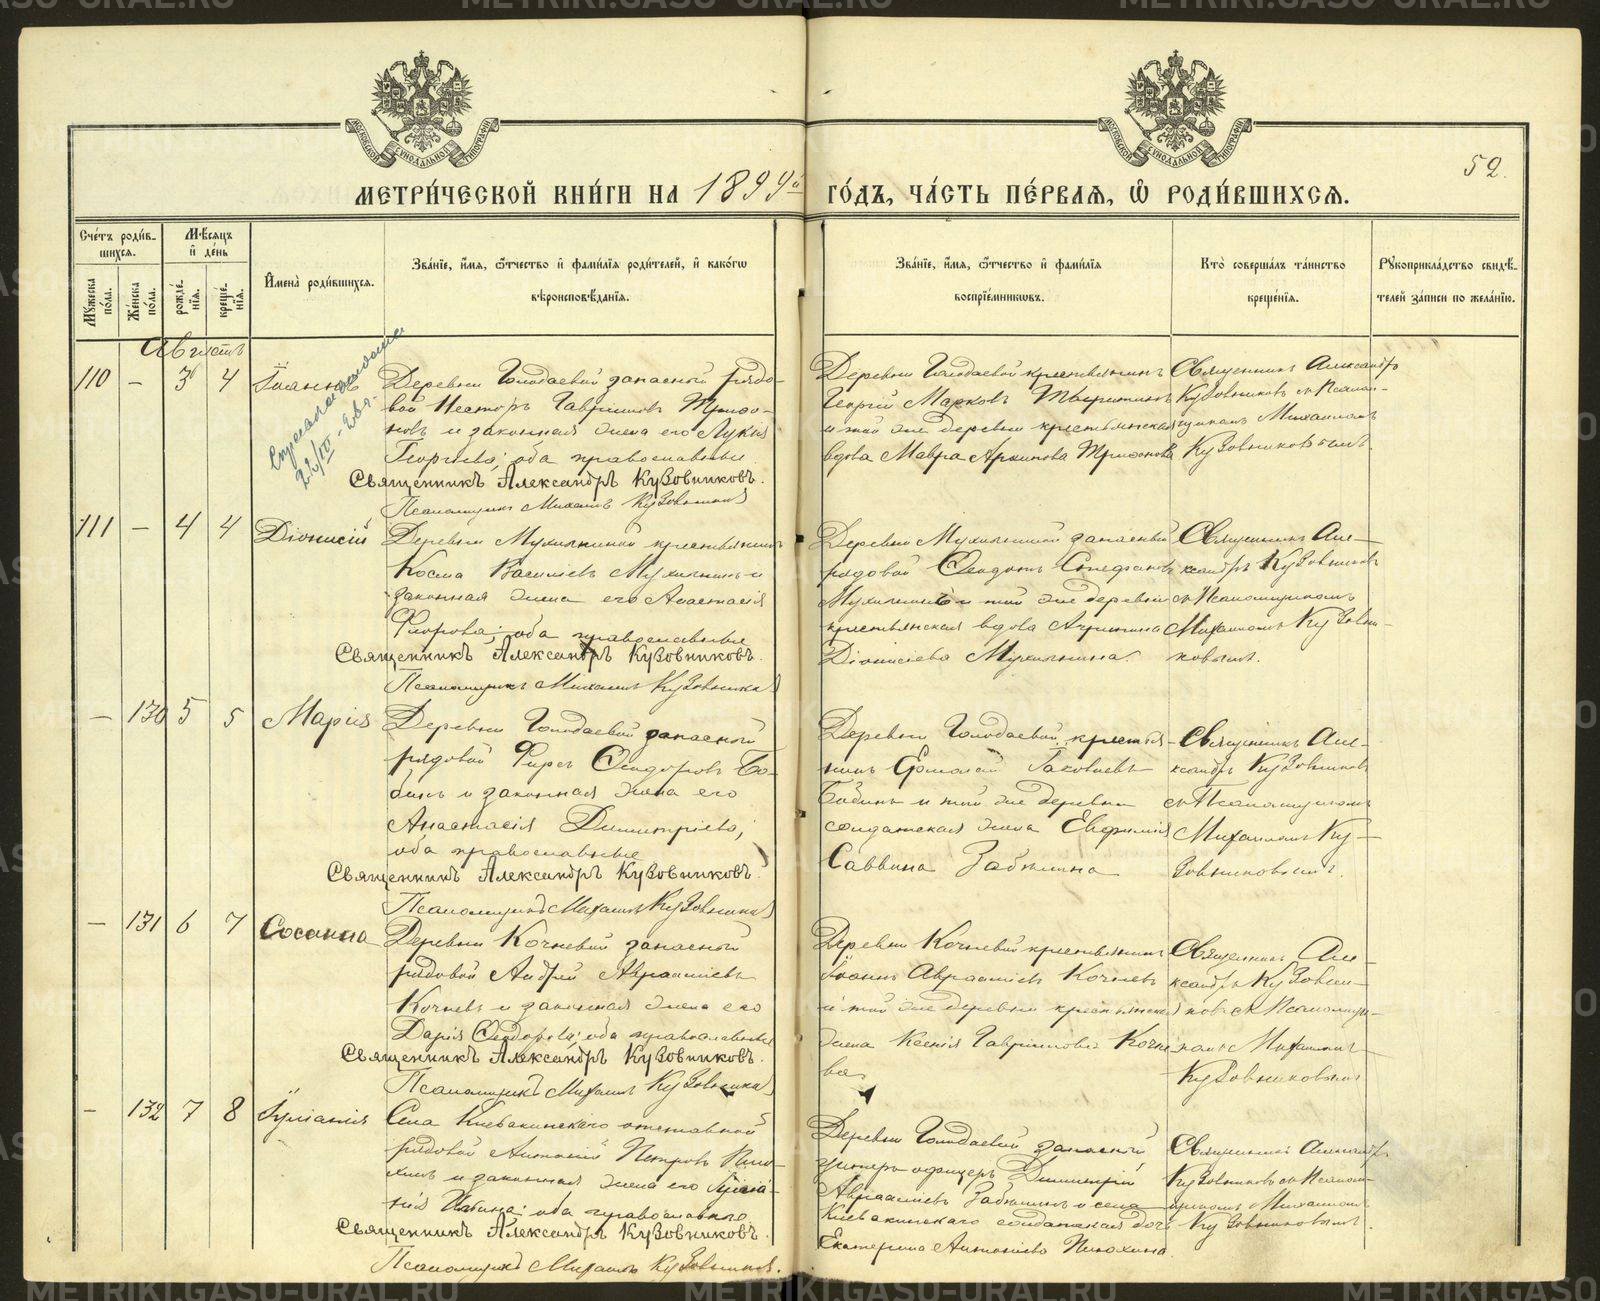 МЕТРИ́ЧЕСКОЙ КНИ́ГИ НА 1899й ГО́ДЪ, ЧА́СТЬ ПЕ́РВАЯ, Ѡ РОДИ́ВШИХСЯ.
52.
Сче́тъ роди́в-
шихся.
Мꙋжеска по́ла.
Же́нска по́ла.
Мѣ́сяцъ и҆ де́нь
рожде́нїя.
креще́нїя.
И҆мена̀ роди́вшихся.
Зва́нїе, и҆́мя, ѻ҆́тчество и҆ фами́лїя роди́телей, и҆ како́гѡ
вѣроисповѣ́данїя.
Зва́нїе, и҆́мя, ѻ҆́тчество и҆ фами́лїя
воспрїе́мникѡвъ.
Кто̀ соверша́лъ та́инство
креще́нїя.
Рꙋкоприкла́дство свидѣ́-
телей за́писи по жела́нїю.
Августъ
110 — 3 4 Іоаннъ
Деревни Голодаевой запасной рядо-
вой Несторъ Гавріиловъ Трифо-
новъ и законная жена его Лукія
Георгіева; оба православные
Священникъ Александръ Кузовниковъ.
Псаломщикъ Михаилъ Кузовниковъ
Деревни Голодаевой крестьянинъ
Георгій Марковъ
и той же деревни крестьянская
вдова Мавра Архипова Трифонова
Священникъ Александръ
Кузовниковъ съ Псалом-
щикомъ Михаиломъ
Кузовниковымъ.
111 — 4 4 Діонисій
Деревни крестьянинъ
Косма Василіевъ и
законная жена его Анастасія
Флорова; оба православные
Священникъ Александръ Кузовниковъ.
Псаломщикъ Михаилъ Кузовниковъ
Деревни запасный
рядовой Ѳеодотъ Стефановъ
и той же деревни
крестьянская вдова Агрипина
Діонисіева
Священникъ Але-
ксандръ Кузовниковъ
съ Псаломщикомъ
Михаиломъ Кузовни-
ковымъ.
— 130 5 5 Марія
Деревни Голодаевой запасной
рядовой Фирсъ Ѳеодоровъ Ба-
бинъ и законная жена его
Анастасія Димитріева;
оба православные
Священникъ Александръ Кузовниковъ.
Псаломщикъ Михаилъ Кузовниковъ
Деревни Голодаевой крестья-
нинъ Ермолай Іаковлевъ
Бабинъ и той же деревни
солдатская жена Евфимія
Саввина Забѣлина
Священникъ Але-
ксандръ Кузовниковъ
съ Псаломщикомъ
Михаиломъ Ку-
зовниковымъ.
— 131 6 7 Сосанна
Деревни Кочневой запасной
рядовой Андрей Авраамiевъ
Кочневъ и законная жена его
Дарія Ѳеодорова; оба православные
Священникъ Александръ Кузовниковъ.
Псаломщикъ Михаилъ Кузовниковъ
Деревни Кочневой крестьянинъ
Іоаннъ Авраамiевъ Кочневъ
и той же деревни крестьянская
жена Ксенія Гавріилова Кочне-
ва
Священникъ Але-
ксандръ Кузовни-
ковъ съ Псаломщи-
комъ Михаиломъ
Кузовниковымъ
— 132 7 8 Іуліанія
Села Клевакинскаго отставной
рядовой Антоній Петровъ Пило-
хинъ и законная жена его Іуліа-
нія оба православные
Священникъ Александръ Кузовниковъ.
Псаломщикъ Михаилъ Кузовниковъ.
Деревни Голодаевой запасной
унтеръ-офицеръ Димитрій
Авраамiевъ Забѣлинъ и села
Клевакинскаго солдатская дочь
Екатерина Антоніева Пилохина.
Священникъ Александръ
Кузовниковъ съ Псалом-
щикомъ Михаиломъ
Кузовниковымъ.